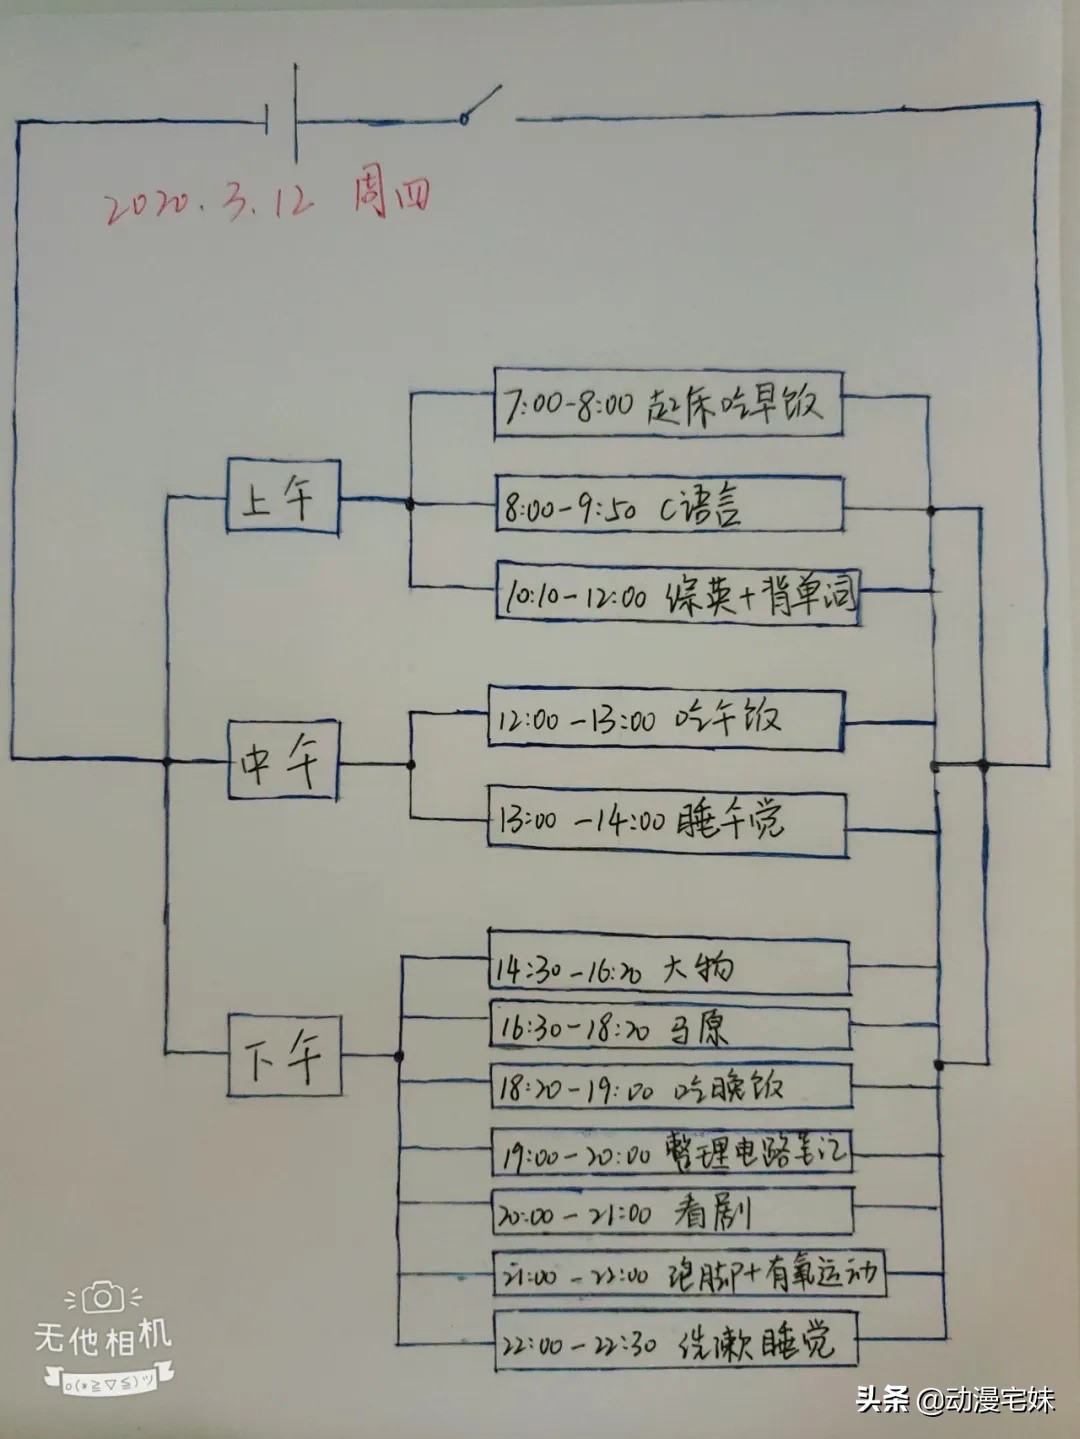 2020.3.12 周四
上午
7:00-8:00 起床吃早饭
8:00-9:50 C语言
10:10-12:00 综英+背单词
中午
12:00-13:00 吃午饭
13:00-14:00 睡午觉
下午
14:30-16:20 大物
16:30-18:20 马原
18:20-19:00 吃晚饭
19:00-20:00 整理电路笔记
20:00-21:00 看剧
21:00-22:00 泡脚+有氧运动
22:00-22:30 洗漱睡觉
无他相机
o(*≧▽≦)ツ
头条 @动漫宅妹